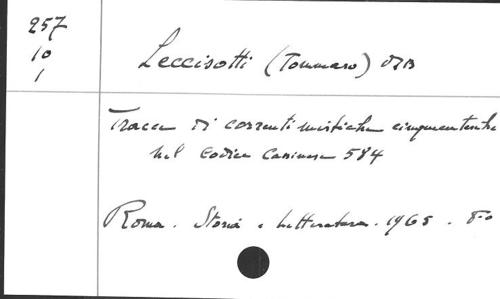 257
10
1
Leccisotti (Tommaso) OSB
Tracce di correnti mistiche cinquecentesche
nel Codice Cassinese 584
Roma. Storia e Letteratura. 1965. 8º